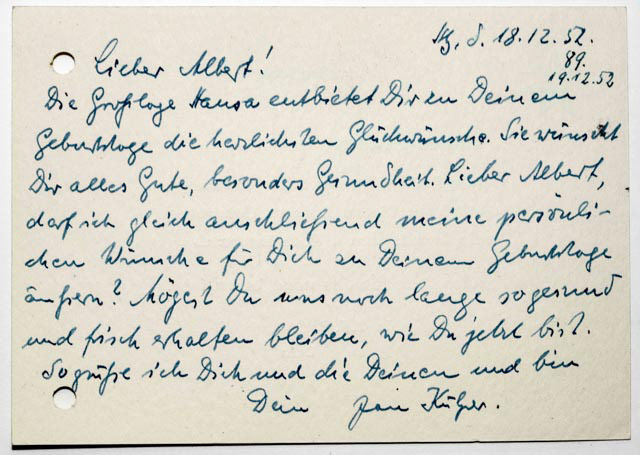 d. 18.12.52.
89.
19.12.52
Lieber Albert!
Die Großloge Hansa entbietet Dir zu Deinem
Geburtstage die herzlichsten Glückwünsche. Sie wünscht
Dir alles Gute, besonders Gesundheit. Lieber Albert,
darf ich gleich anschließend meine persönli-
chen Wünsche für Dich zu Deinem Geburtstage
äußern? Mögest Du uns noch lange so gesund
und frisch erhalten bleiben, wie Du jetzt bist.
So grüße ich Dich und die Deinen und bin
Dein